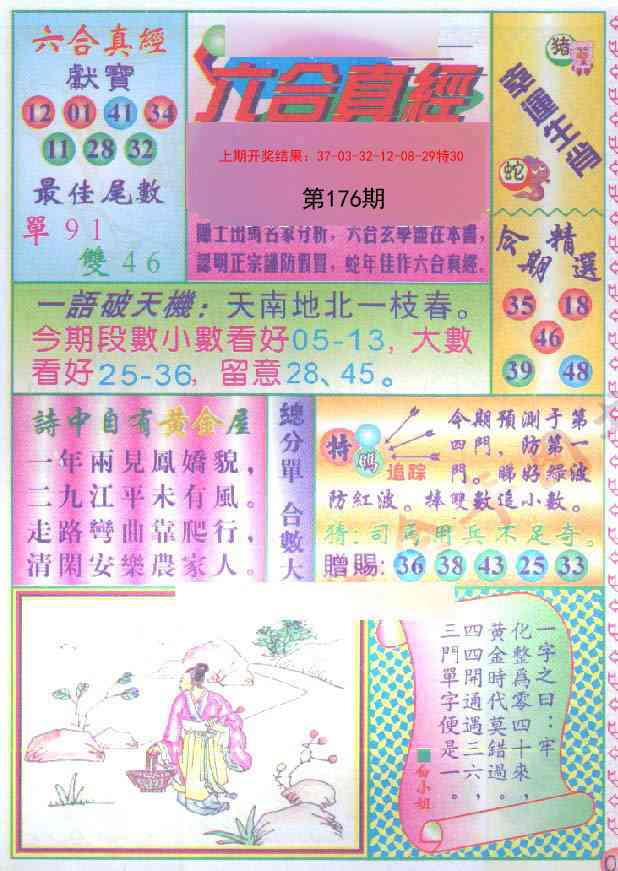 六合真經
獻寶
12 01 41 34
11 28 32
最佳尾數
單 9 1
雙 4 6
六合真經
上期开奖结果：37-03-32-12-08-29特30
第176期
認明正宗謹防假冒，蛇年佳作六合真經。
豬
蛇
今期精選
35 18
46
39 48
一語破天機：天南地北一枝春。
今期段數小數看好05-13，大數
看好25-36，留意28、45。
詩中自有黃金屋
一年兩見鳳嬌貌，
二九江平未有風。
走路彎曲靠爬行，
清閑安樂農家人。
總分單 合數大
特碼
追踪
今期預測于第
四門，防第一
門。睇好綠波
防紅波。捧雙數追小數。
猜：司馬用兵不足奇。
贈賜：36 38 43 25 33
一字之曰：牢
化整為零四十來，
黃金時代莫錯過。
四四開通遇三六，
三門單字便是一。
白小姐